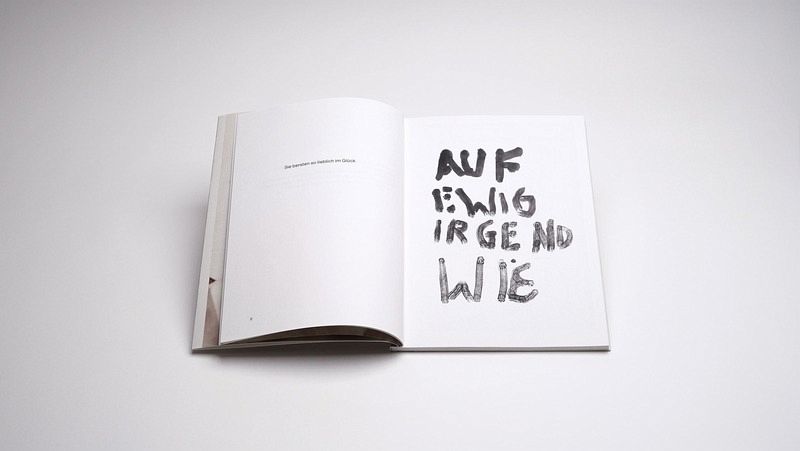 Sie bersten so lieblich im Glück.
AUF
EWIG
IRGEND
WIE